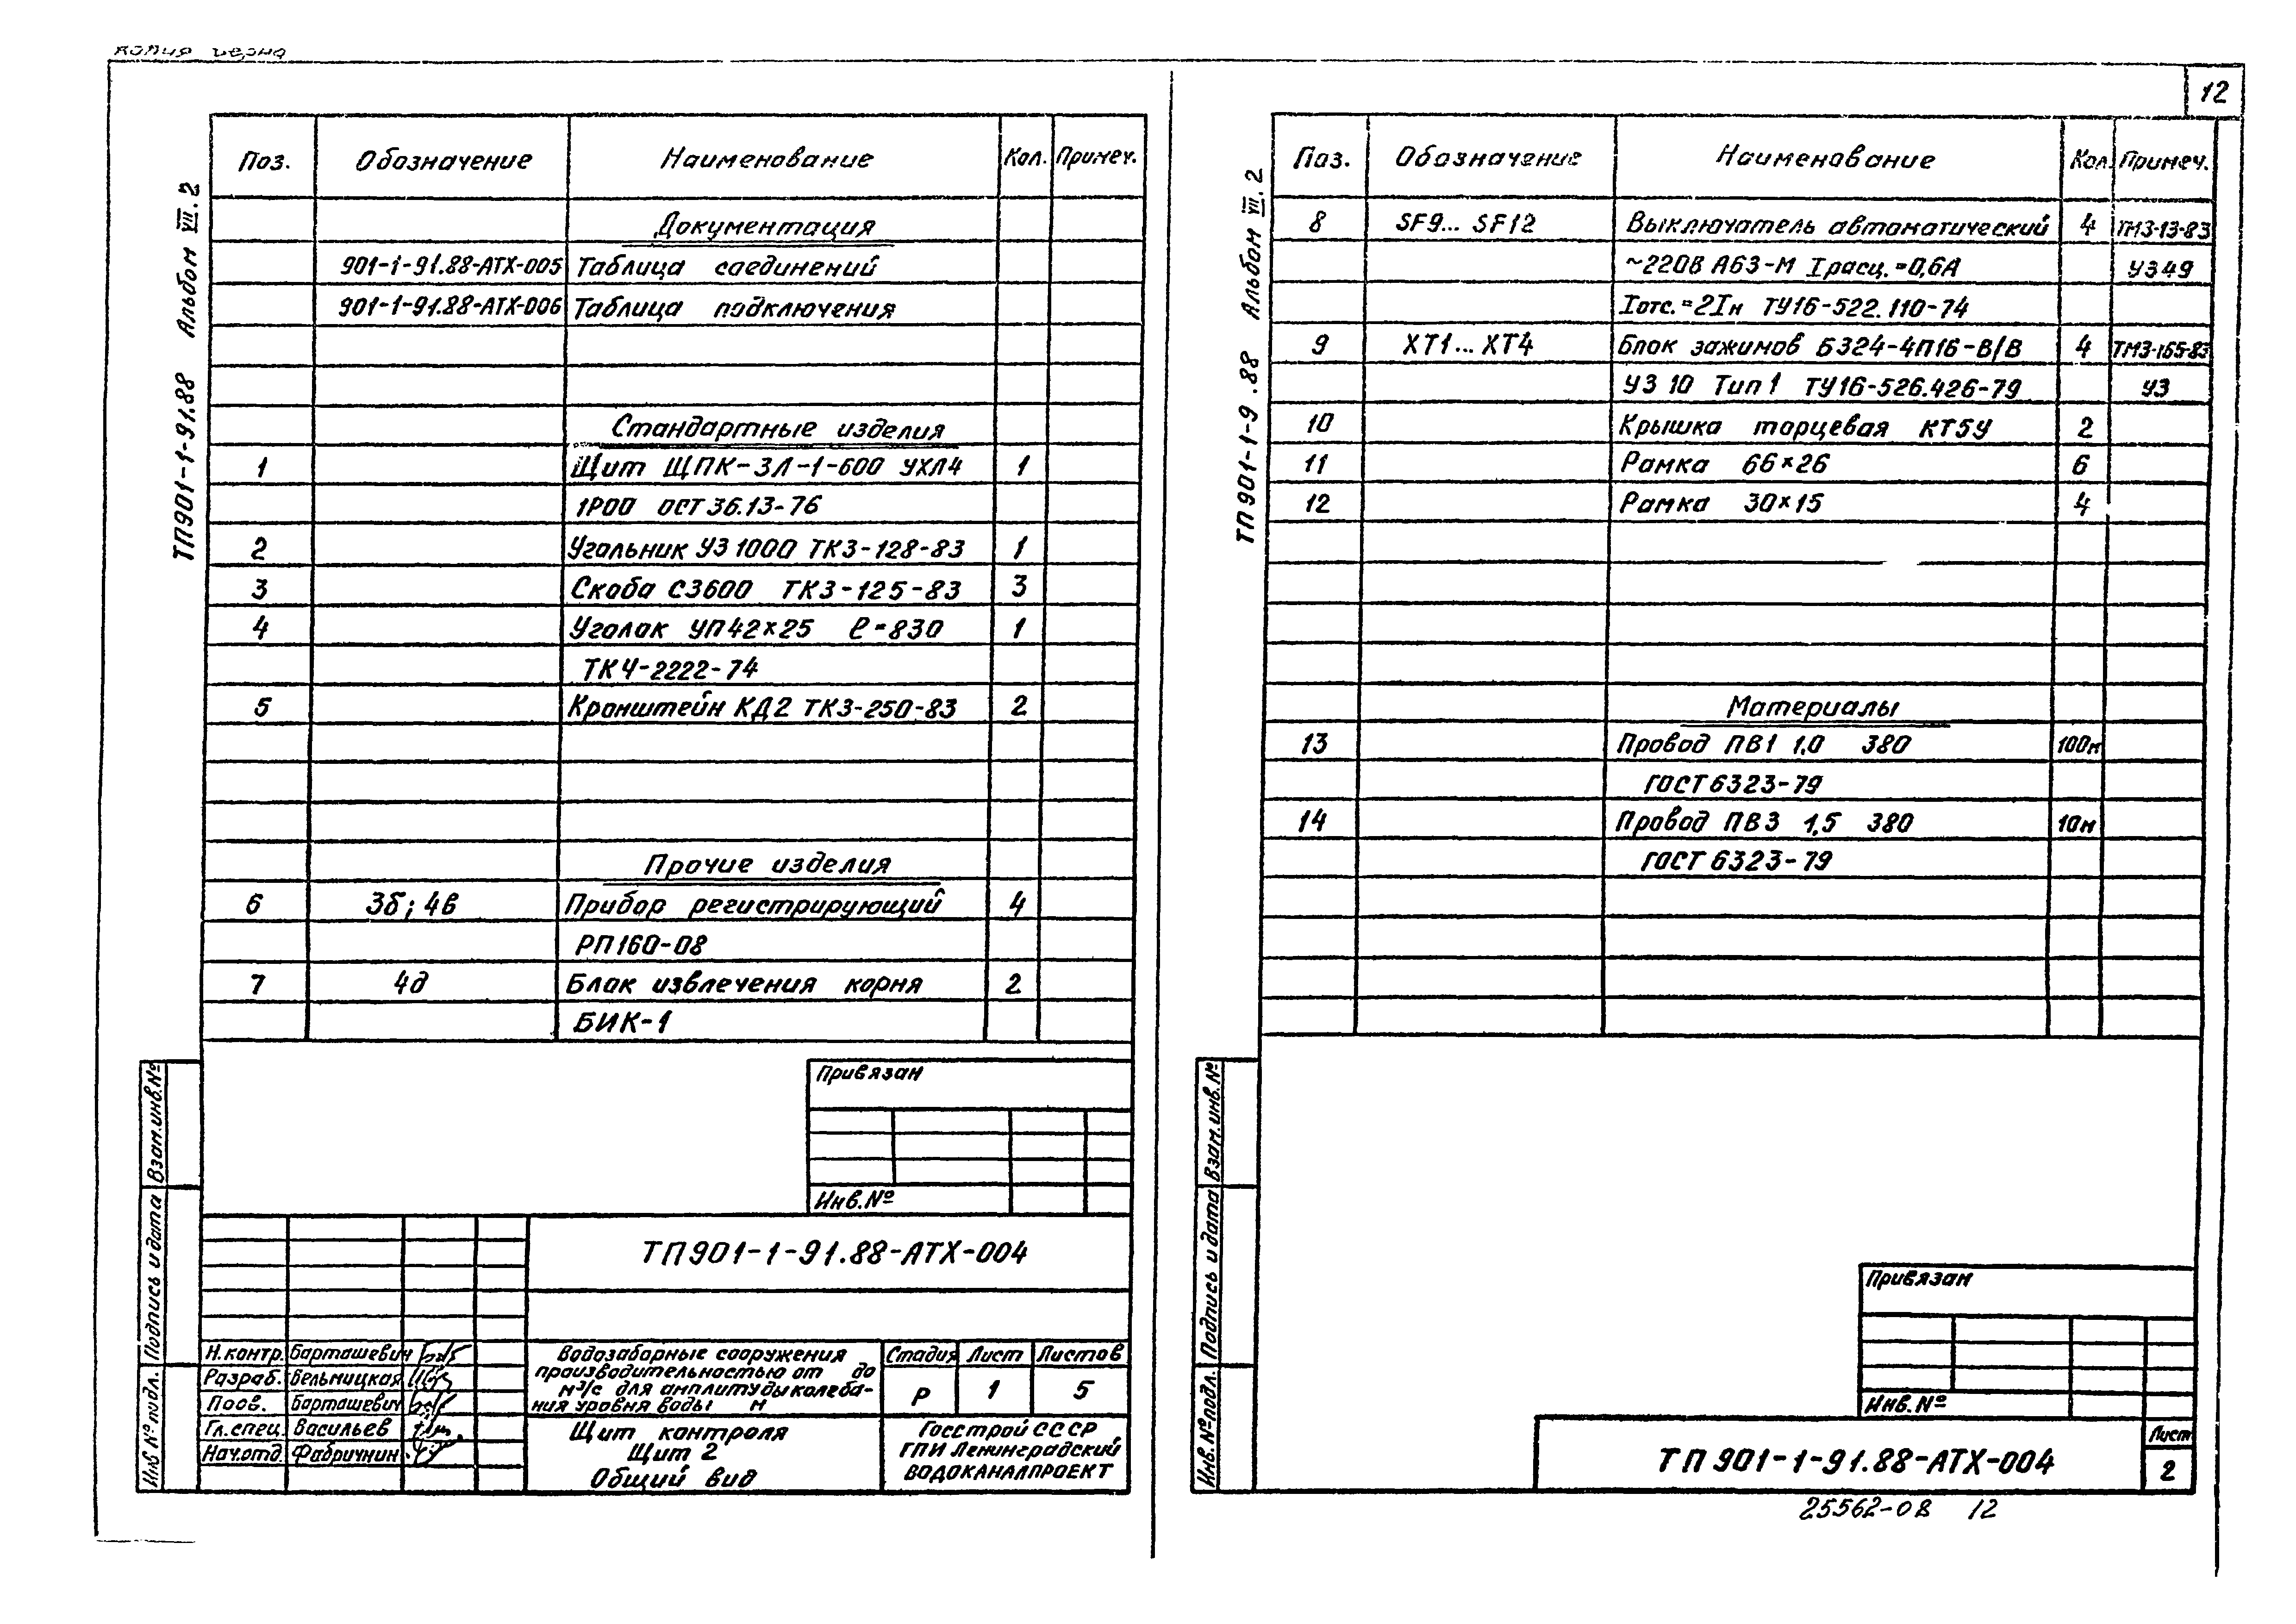 копия верна
12
ТП901-1-91.88 Альбом VII.2
Поз. Обозначение Наименование Кол. Примеч.
Документация
901-1-91.88-АТХ-005 Таблица соединений
901-1-91.88-АТХ-006 Таблица подключения
Стандартные изделия
1 Щит ЩПК-ЗЛ-1-600 УХЛ4 1
1Р00 ОСТ 36.13-76
2 Угольник УЗ 1000 ТКЗ-128-83 1
3 Скоба СЗ600 ТКЗ-125-83 3
4 Уголок УП42×25 ℓ=830 1
ТК4-2222-74
5 Кронштейн КД2 ТКЗ-250-83 2
Прочие изделия
6 3б; 4в Прибор регистрирующий 4
РП160-08
7 4д Блок извлечения корня 2
БИК-1
Привязан
Инв.№
Взам.инв.№
Подпись и дата
Инв № подл.
ТП901-1-91.88-АТХ-004
Н.контр. Барташевич
Разраб. Бельницкая
Пров. Барташевич
Гл.спец. Васильев
Нач.отд. Фабричнин
Водозаборные сооружения
производительностью от до
м³/с для амплитуды колеба-
ния уровня воды м
Стадия Лист Листов
Р 1 5
Щит контроля
Щит 2
Общий вид
Госстрой СССР
ГПИ Ленинградский
ВОДОКАНАЛПРОЕКТ
ТП901-1-9 .88 Альбом VII.2
Поз. Обозначение Наименование Кол. Примеч.
8 SF9... SF12 Выключатель автоматический 4 ТМЗ-13-83
~220В А63-М Iрасц.=0,6А УЗ49
Iотс.=2Iн ТУ16-522.110-74
9 ХТ1... ХТ4 Блок зажимов БЗ24-4П16-В/В 4 ТМЗ-165-83
УЗ 10 Тип 1 ТУ16-526.426-79 УЗ
10 Крышка торцевая КТ5У 2
11 Рамка 66×26 6
12 Рамка 30×15 4
Материалы
13 Провод ПВ1 1,0 380 100м
ГОСТ 6323-79
14 Провод ПВ3 1,5 380 10м
ГОСТ 6323-79
Взам.инв.№
Подпись и дата
Инв.№подл.
Привязан
Инв.№
ТП 901-1-91.88-АТХ-004
Лист
2
25562-08 12